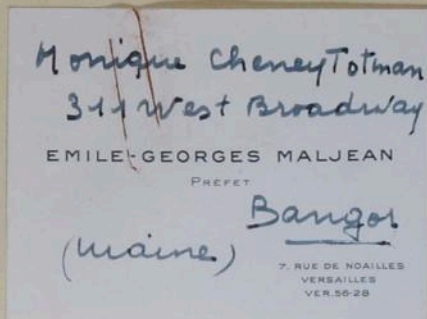 Monique Cheney Totman
311 West Broadway
EMILE-GEORGES MALJEAN
PRÉFET
Bangor
(Maine)
7, RUE DE NOAILLES
VERSAILLES
VER. 56-28